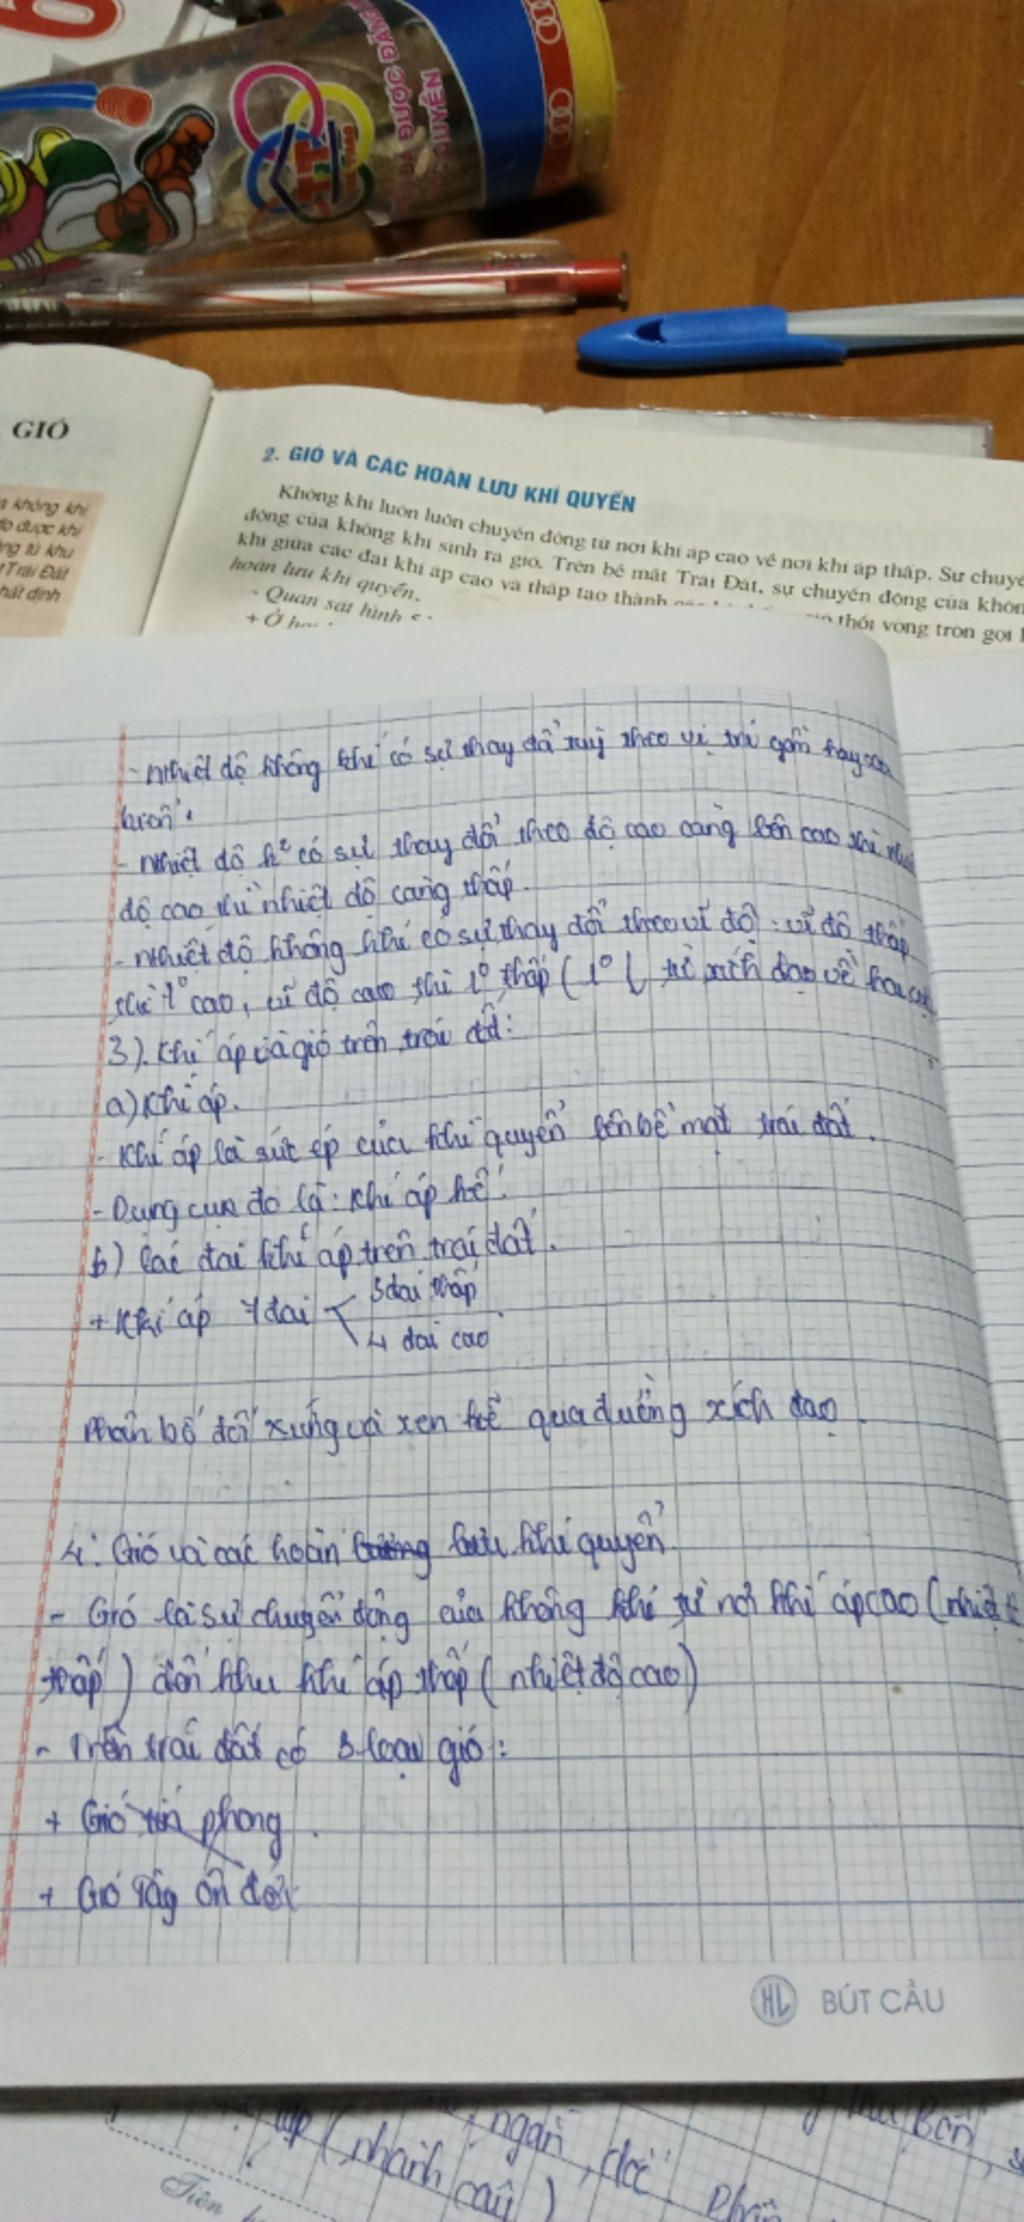 6
ĐẲNG
QUYỀN
GIÓ
a không khí
do được khí
ng từ khu
Trái Đất
hất định
2. GIÓ VÀ CÁC HOÀN LƯU KHÍ QUYỂN
Không khí luôn luôn chuyển động từ nơi khí áp cao về nơi khí áp thấp. Sự chuyể
động của không khí sinh ra gió. Trên bề mặt Trái Đất, sự chuyển động của khôn
khí giữa các đai khí áp cao và thấp tạo thành thổi vòng tròn gọi l
hoàn lưu khí quyển.
- Quan sát hình 5
+ Ở
- Nhiệt độ không khí có sự thay đổi tuỳ theo vị trí gần hay xa
biển.
- Nhiệt độ k² có sự thay đổi theo độ cao càng lên cao thì
độ cao thì nhiệt độ càng thấp.
- Nhiệt độ không khí có sự thay đổi theo vĩ độ: vĩ độ thấp
thì t° cao, vĩ độ cao thì t° thấp (t° ↓ từ xích đạo về hai cực
3). Khí áp và gió trên trái đất:
a) Khí áp.
- Khí áp là sức ép của khí quyển lên bề mặt trái đất.
- Dụng cụ đo là: Khí áp kế.
b) Các đai khí áp trên trái đất.
+ Khí áp 7 đai < 3 đai thấp
4 đai cao
Phân bố đối xứng và xen kẽ qua đường xích đạo.
4. Gió và các hoàn lưu khí quyển.
- Gió là sự chuyển động của không khí từ nơi khí áp cao (nhiệt
thấp) đến khu khí áp thấp (nhiệt độ cao)
- Trên trái đất có 3 loại gió:
+ Gió tín phong.
+ Gió Tây ôn đới
HL BÚT CẦU
(nhanh ngắn, dốc
câu)
Bồn,
Tiên